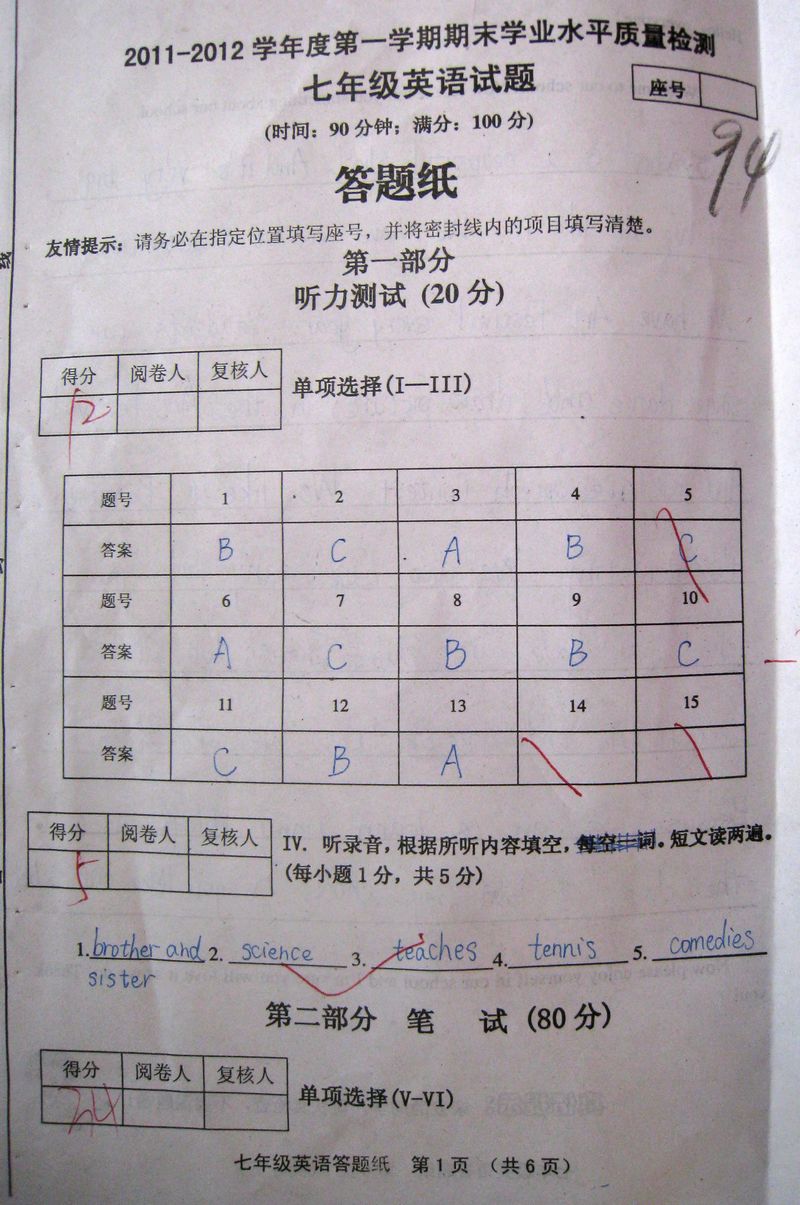 2011-2012 学年度第一学期期末学业水平质量检测
七年级英语试题
座号
(时间：90 分钟；满分：100 分)
94
答题纸
友情提示：请务必在指定位置填写座号，并将密封线内的项目填写清楚。
线
第一部分
听力测试 (20 分)
得分 阅卷人 复核人
12
单项选择(I—III)
题号 1 2 3 4 5
答案 B C A B C
题号 6 7 8 9 10
答案 A C B B C
题号 11 12 13 14 15
答案 C B A
得分 阅卷人 复核人
5
IV. 听录音，根据所听内容填空，每空一词。短文读两遍。
(每小题 1 分，共 5 分)
1. brother and 2. science 3. teaches 4. tennis 5. comedies
sister
第二部分 笔 试 (80 分)
得分 阅卷人 复核人
24
单项选择(V-VI)
七年级英语答题纸 第 1 页 （共 6 页）